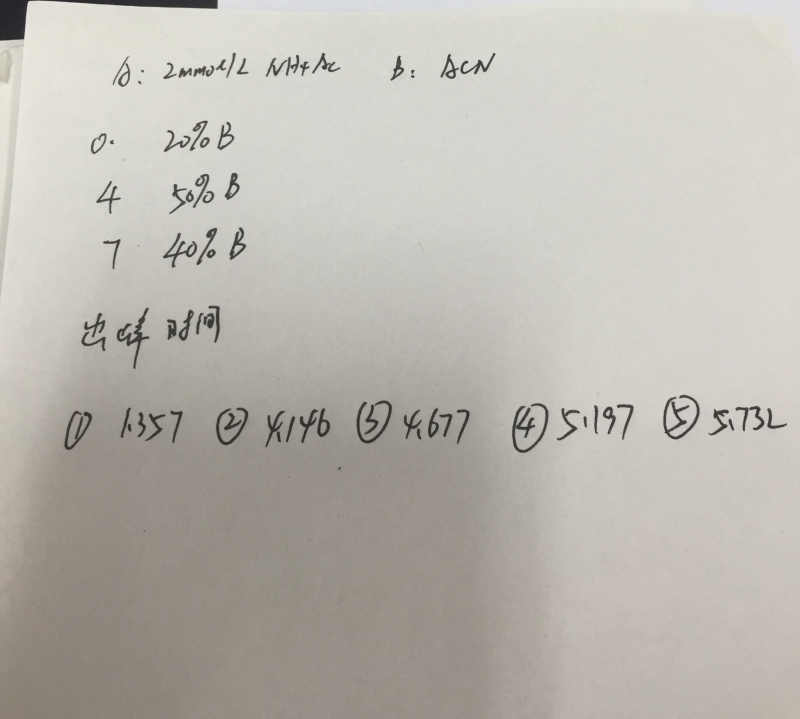 A: 2mmol/L NH4Ac B: ACN
0. 20% B
4 50% B
7 40% B
出峰时间
① 1.357 ② 4.146 ③ 4.677 ④ 5.197 ⑤ 5.732